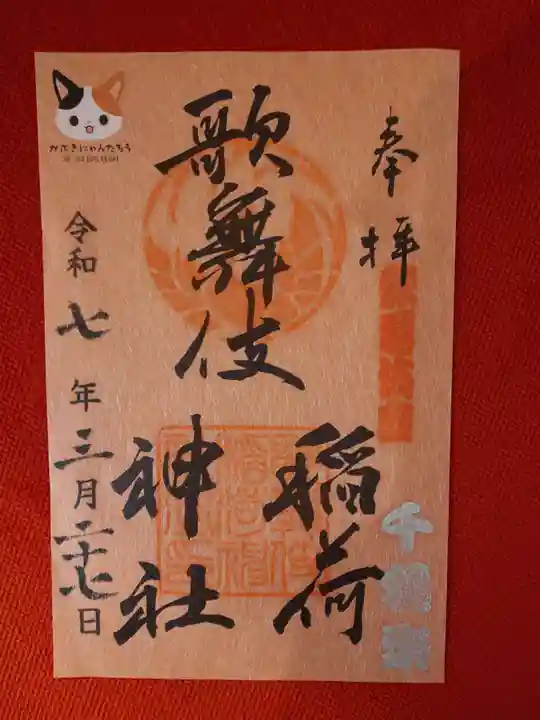 奉拝
千穐楽
歌舞伎
稲荷
神社
かぶきにゃんたろう
令和七年三月二十七日